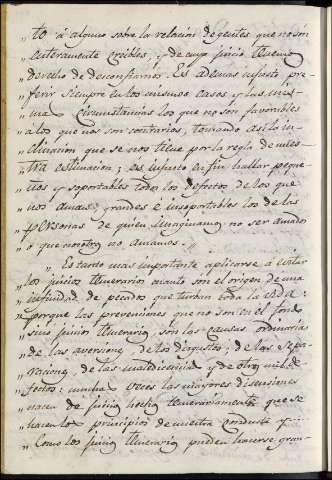 " to á alguno sobre la relacion de gentes que no són
" enteramente creibles, y de cuyo juicio tenemos
" derecho de desconfiarnos. Es ademas injusto pre-
" ferir siempre en los mismos casos y las mis-
" mas circunstancias los que no són favorables
" a los que nos son contrarios, tomando asi la in-
" clinacion que se nos tiene por la regla de nues-
" tra estimacion; es injusto en fin hallar peque-
" ños y soportables todos los defectos de los que
" nos aman, grandes é insoportables los de las
" personas de quien imaginamos no ser amados
" o que nosotros no amamos."
" Es tanto mas importante aplicarse á evitar
" los juicios temerarios cuanto son el origen de una
" infinidad de pecados que turban toda la vida:
" porque las prevenciones que no son en el fondo
" sino juicios temerarios, son las causas ordinarias
" de las aversiones, de los disgustos, de las sepa-
" raciones, de las maledicencias y de otros mil de-
" fectos: muchas veces las mayores disensiones
" nacen de juicios hechos temerariamente que se
" hacen los principios de nuestra conducta y
" Como los juicios temerarios pueden hacerse gran-